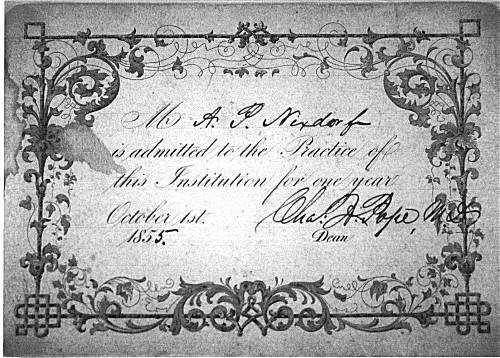 M A. P. Nixdorf
is admitted to the Practice of
this Institution for one year
October 1st. Chas. A. Pope, M.D.
1855. Dean